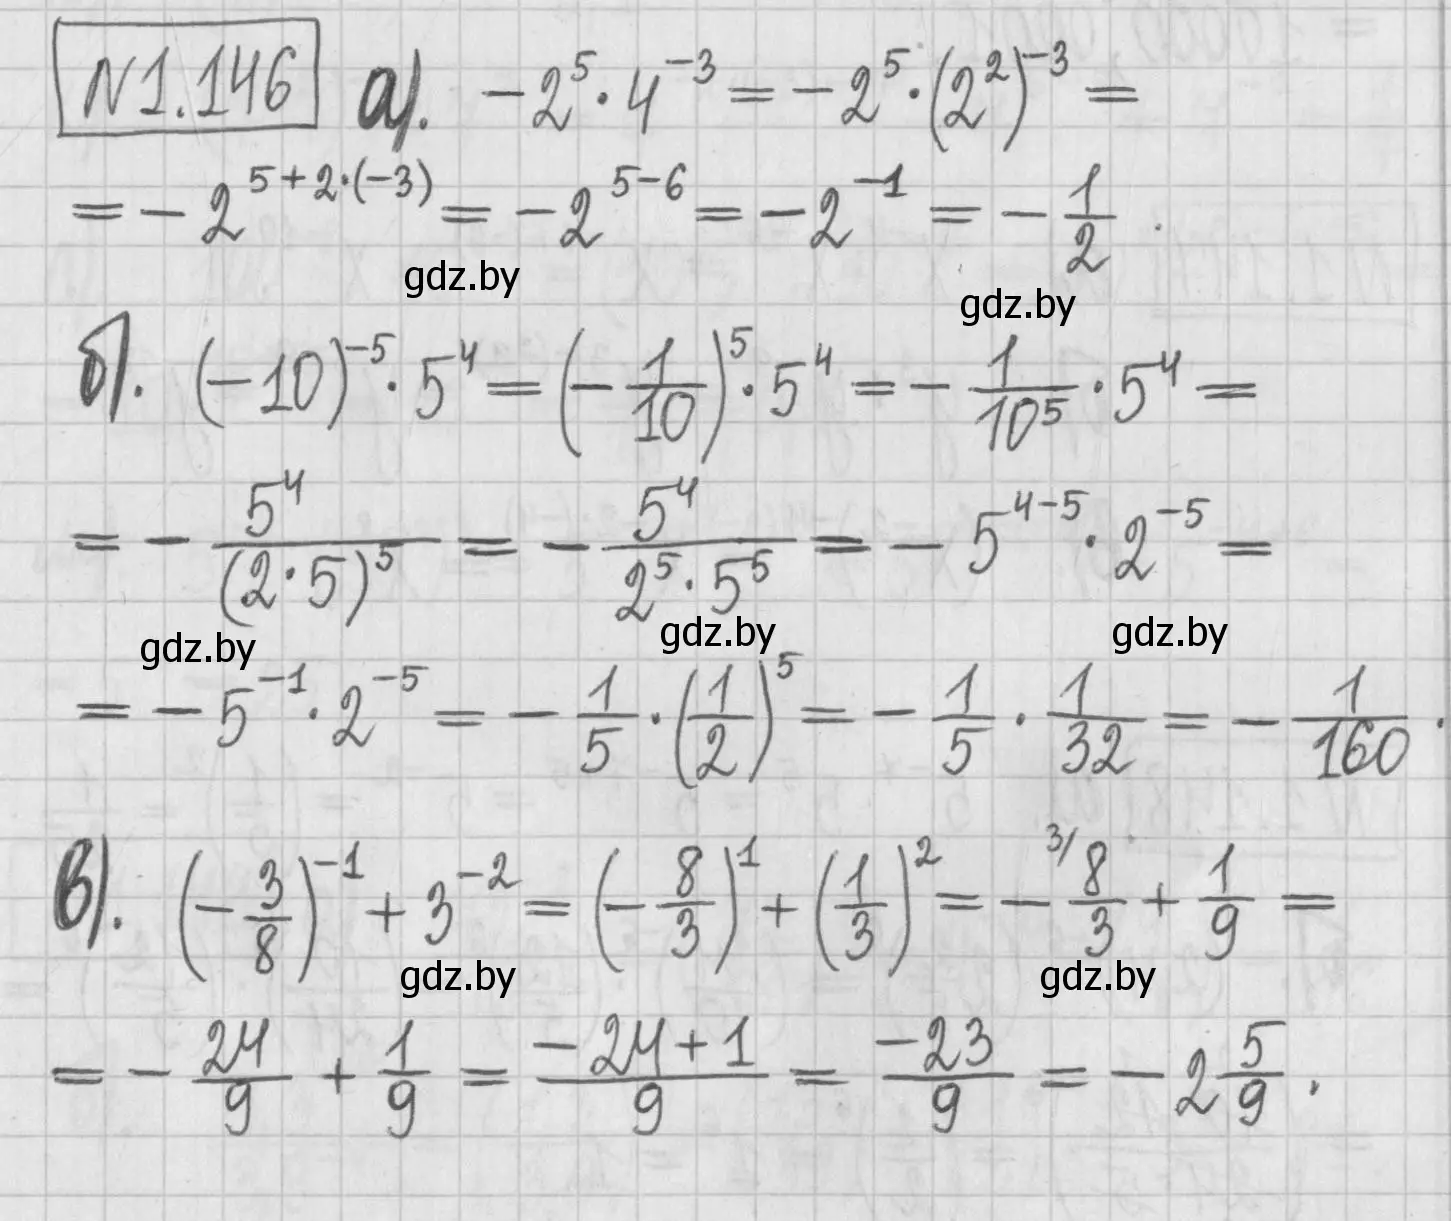 N1.146 а). -2⁵·4⁻³=-2⁵·(2²)⁻³=
=-2⁵⁺²·⁽⁻³⁾=-2⁵⁻⁶=-2⁻¹=-1/2.
gdz.by gdz.by
б). (-10)⁻⁵·5⁴=(-1/10)⁵·5⁴=-1/10⁵·5⁴=
=-5⁴/(2·5)⁵=-5⁴/(2⁵·5⁵)=-5⁴⁻⁵·2⁻⁵=
gdz.by gdz.by gdz.by
=-5⁻¹·2⁻⁵=-1/5·(1/2)⁵=-1/5·1/32=-1/160.
в). (-3/8)⁻¹+3⁻²=(-8/3)¹+(1/3)²=-³⁄8/3+1/9=
gdz.by gdz.by
=-24/9+1/9=(-24+1)/9=-23/9=-2 5/9.